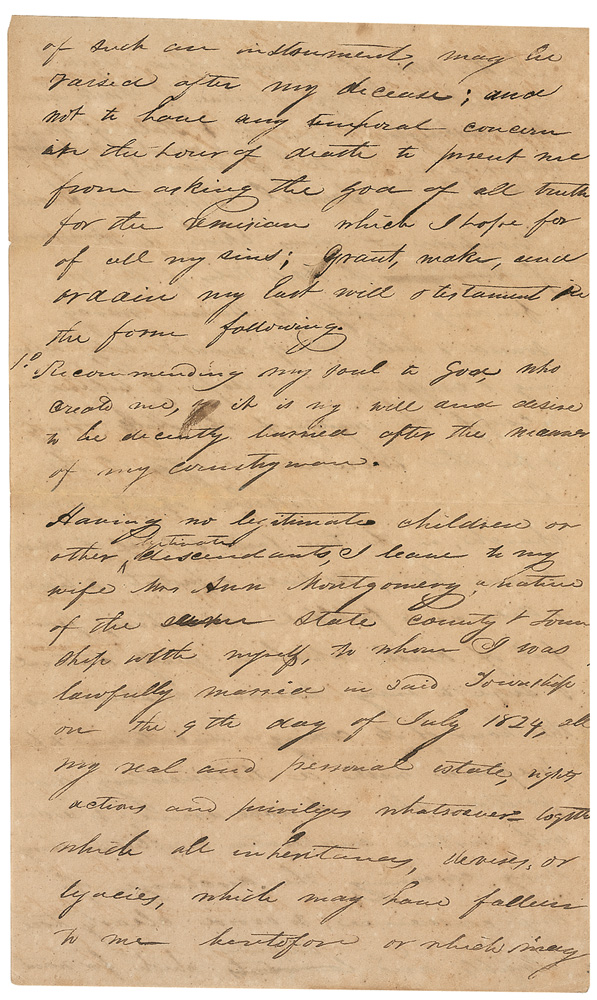 of such an instrument, may be
raised after my decease; and
not to have any temporal concern
in the hour of death to prevent me
from asking the God of all truth
for the remission which I hope for
of all my sins; Grant, make, and
ordain my last will & testament in
the form following.
1.o Recommending my soul to God, who
created me, it is my will and desire
to be decently burried after the manner
of my countrymen.
Having no legitimate children or
legitimate
other descendants, I leave to my
wife Mrs Ann Montgomery, a native
of the same State County & Town
ship with myself, to whom I was
lawfully married in said Township
on the 9th day of July 1824, all
my real and personal estate, rights
actions and priviliges whatsoever togeth
which all inheritances, devises, or
legacies, which may have fallen
to me heretofore or which may